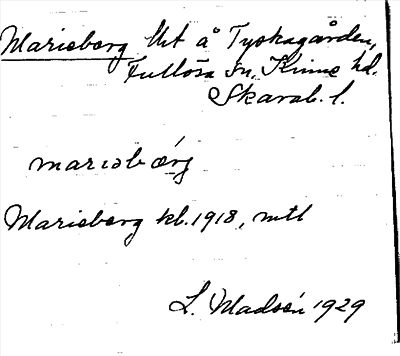 Marieberg lht å Tyskagården,
Fullösa sn, Kinne hd.
Skarab. l.
marisbærg
Marieberg kb. 1918, mtl
L. Madsén 1929